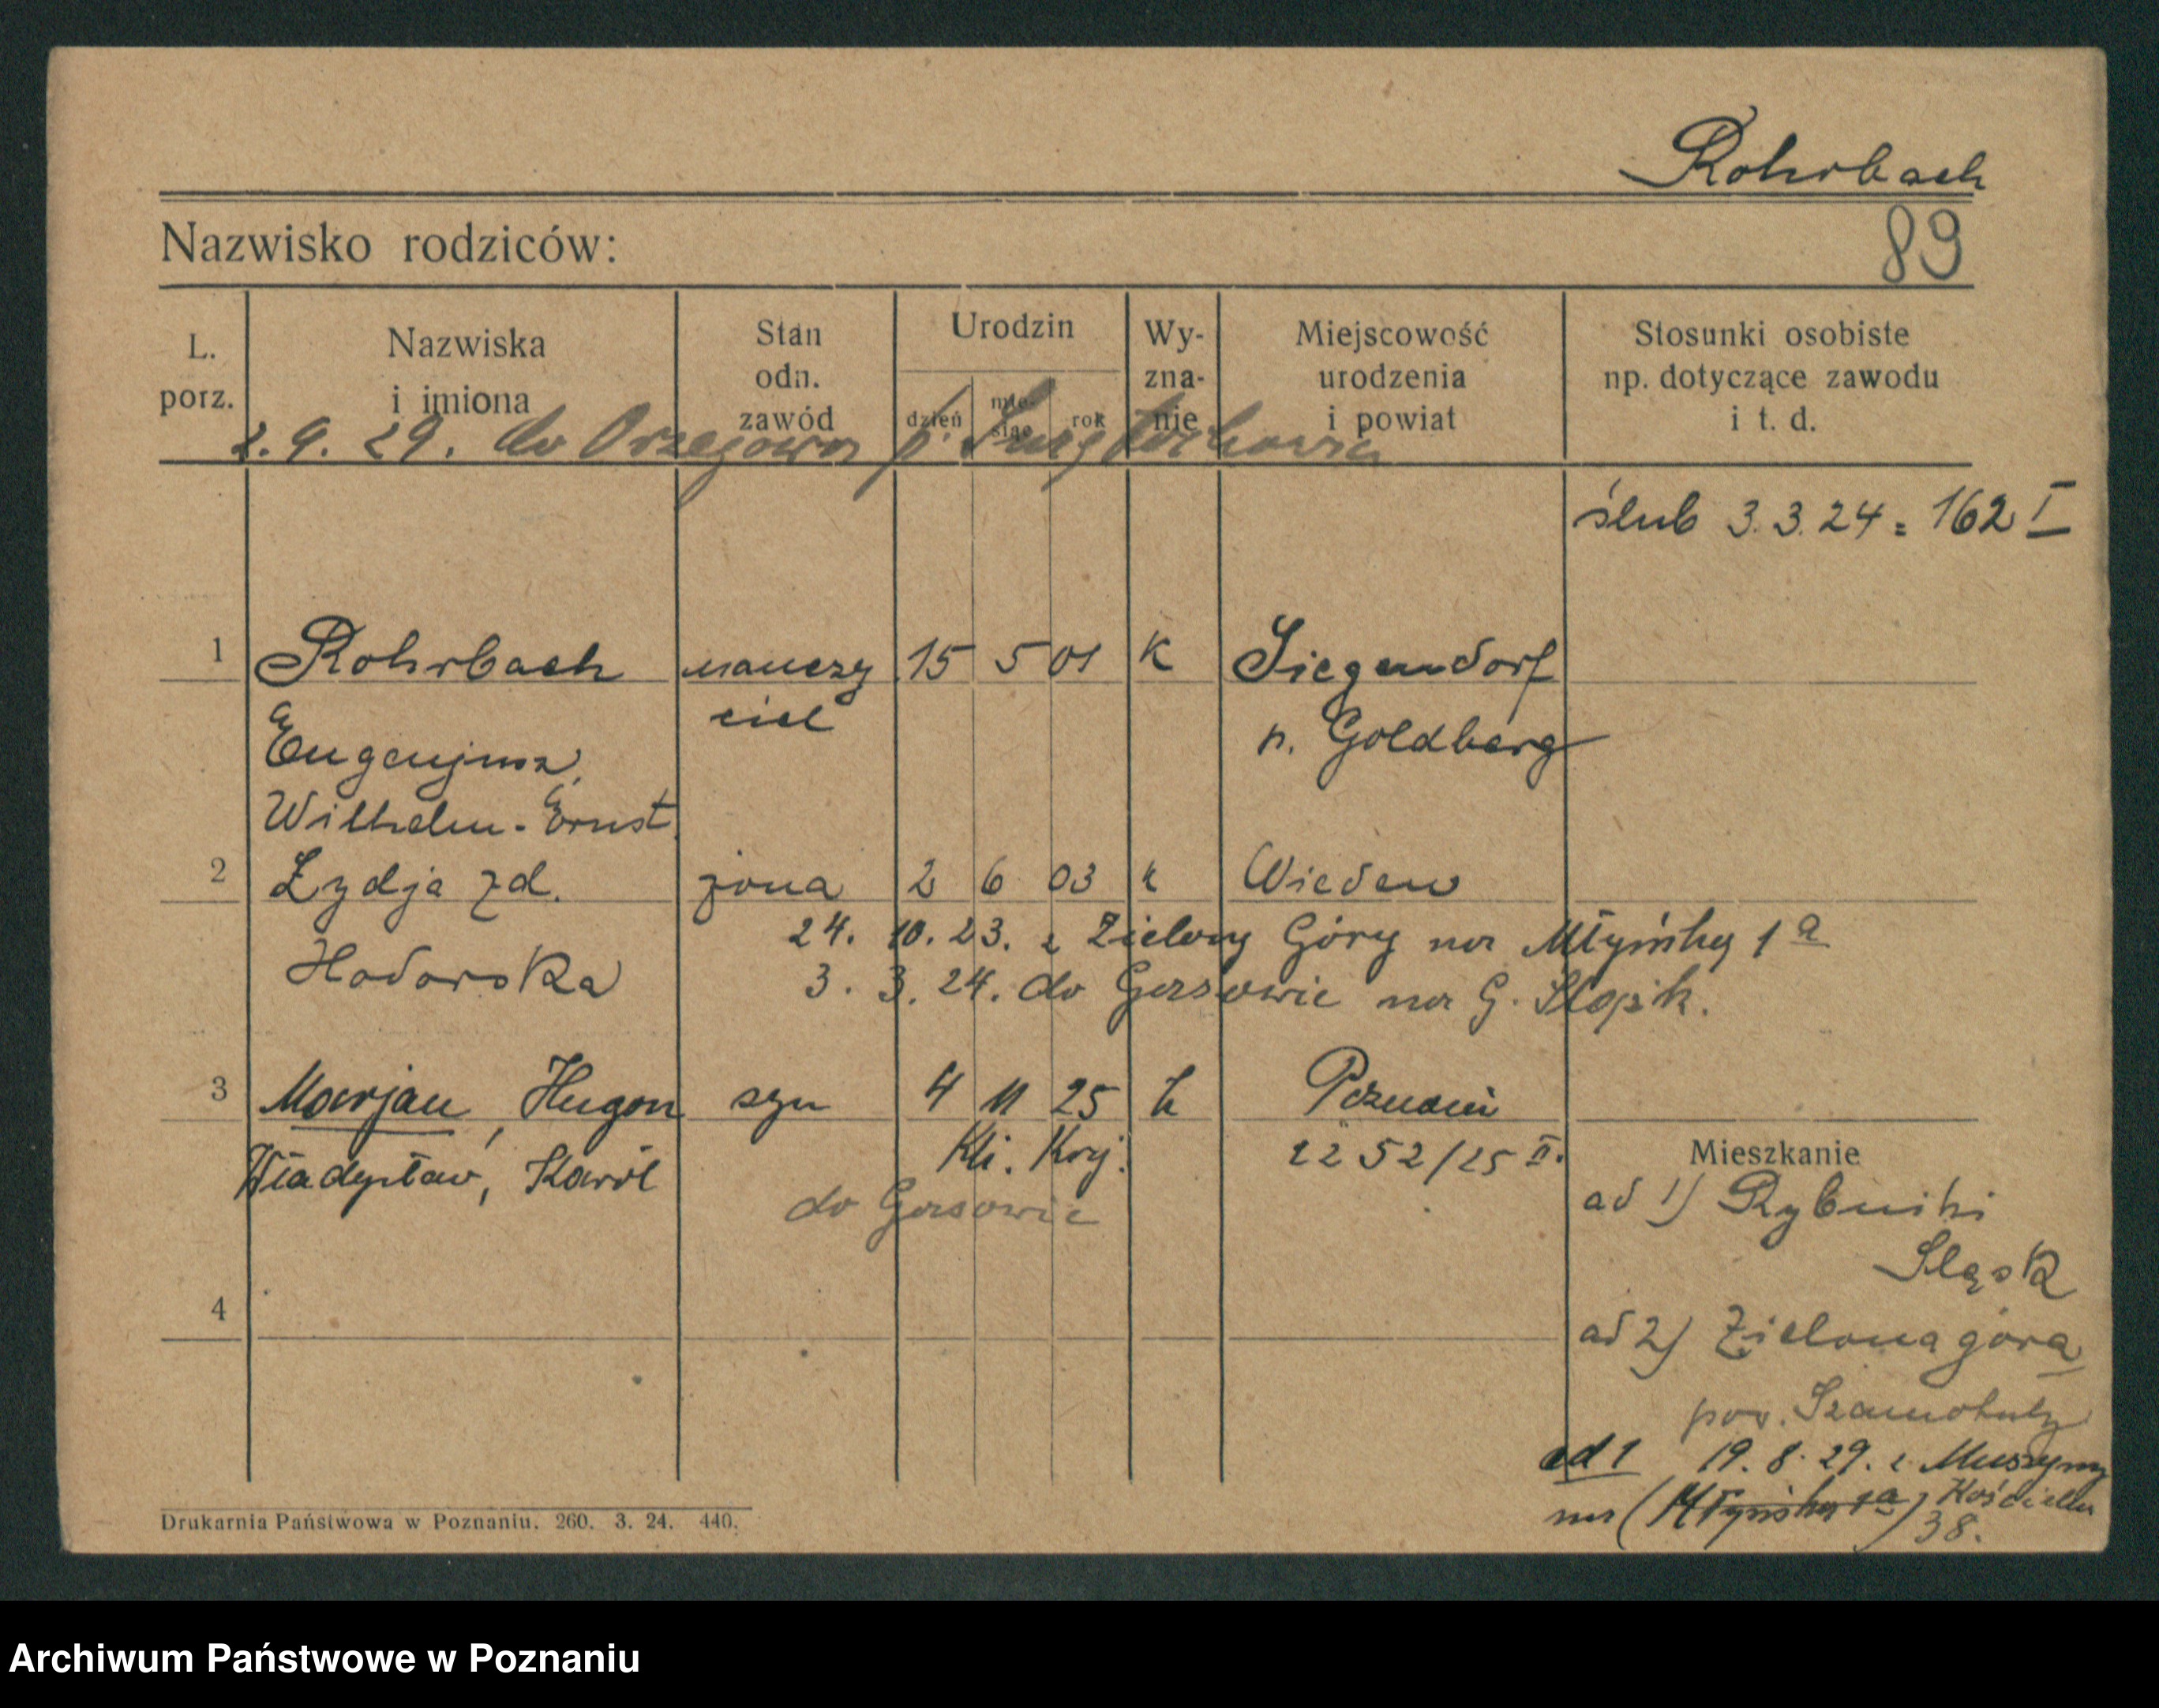 Rohrbach
Nazwisko rodziców:
89
L. porz.
Nazwiska i imiona
Stan odn. zawód
Urodzin
dzień
mie-siąc
rok
Wy-zna-nie
Miejscowość urodzenia i powiat
Stosunki osobiste np. dotyczące zawodu i t. d.
2. 9. 29. do Orzegowa p.
ślub 3. 3. 24 = 162 I
1 Rohrbach nauczy 15 5 01 K Siegendorf
ciel
Eugenjusz, p. Goldberg
Wilhelm-Ernst
2 Lydja zd. żona 2 6 03 k Wieden
24. 10. 23. z Zielony Góry na Młyńską 1 a
Hodorska
3. 3. 24. do na G. Śląsk.
3 Marjan, Hugon syn 4 11 25 k Poznań
Kli. Kraj. 2252/25 II.
Władysław, Karol
do
Mieszkanie
ad 1) Rybniki
Śląsk
4
ad 2) Zielona góra
pow. Szamotuły
ad 1 19. 8. 29. z Muszyny
na (Młyńską 1a) Kościelna
38.
Drukarnia Państwowa w Poznaniu. 260. 3. 24. 440.
Archiwum Państwowe w Poznaniu